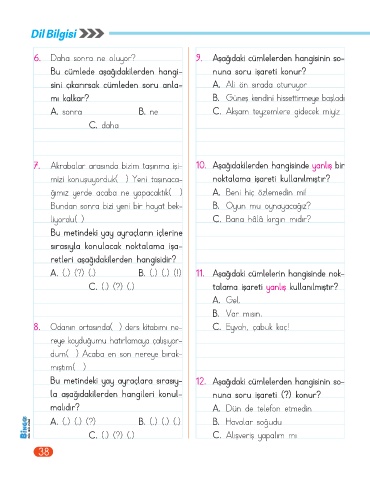 Dil Bilgisi
6. Daha sonra ne oluyor?
Bu cümlede aşağıdakilerden hangi-
sini çıkarırsak cümleden soru anla-
mı kalkar?
A. sonra B. ne
C. daha
7. Akrabalar arasında bizim taşınma işi-
mizi konuşuyorduk( ) Yeni taşınaca-
ğımız yerde acaba ne yapacaktık( )
Bundan sonra bizi yeni bir hayat bek-
liyordu( )
Bu metindeki yay ayraçların içlerine
sırasıyla konulacak noktalama işa-
retleri aşağıdakilerden hangisidir?
A. (.) (?) (.) B. (.) (.) (!)
C. (.) (?) (.)
8. Odanın ortasında( ) ders kitabımı ne-
reye koyduğumu hatırlamaya çalışıyor-
dum( ) Acaba en son nereye bırak-
mıştım( )
Bu metindeki yay ayraçlara sırasıy-
la aşağıdakilerden hangileri konul-
malıdır?
A. (,) (.) (?) B. (.) (.) (.)
C. (.) (?) (.)
38
9. Aşağıdaki cümlelerden hangisinin so-
nuna soru işareti konur?
A. Ali ön sırada oturuyor
B. Güneş kendini hissettirmeye başladı
C. Akşam teyzemlere gidecek miyiz
10. Aşağıdakilerden hangisinde yanlış bir
noktalama işareti kullanılmıştır?
A. Beni hiç özlemedin mi!
B. Oyun mu oynayacağız?
C. Bana hâlâ kırgın mıdır?
11. Aşağıdaki cümlelerin hangisinde nok-
talama işareti yanlış kullanılmıştır?
A. Gel.
B. Var mısın.
C. Eyvah, çabuk kaç!
12. Aşağıdaki cümlelerden hangisinin so-
nuna soru işareti (?) konur?
A. Dün de telefon etmedin
B. Havalar soğudu
C. Alışveriş yapalım mı